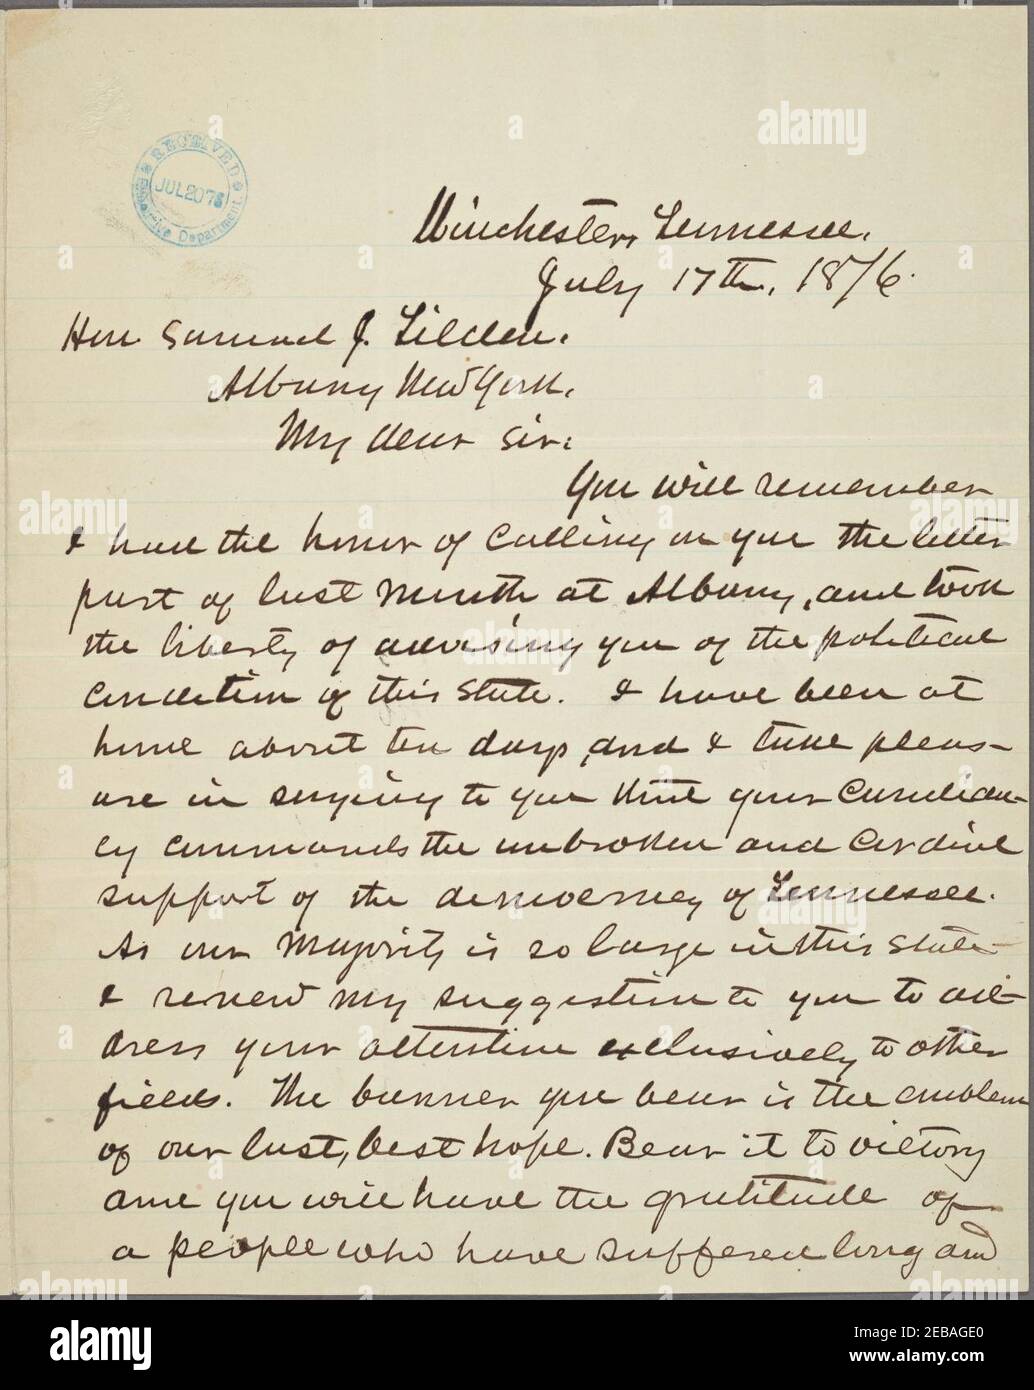 RECEIVED
JUL 20 76
Executive Department
Winchester, Tennessee.
July 17th, 1876.
Hon. Samuel J. Tilden.
Albany New York.
My dear Sir:
You will remember
I had the honor of calling on you the latter
part of last month at Albany, and took
the liberty of advising you of the political
condition of this State. I have been at
home about ten days, and I take pleas-
ure in saying to you that your Candidan-
cy commands the unbroken and Cordial
support of the democracy of Tennessee.
As our Majority is so large in this State
I renew my suggestion to you to ad-
dress your attention exclusively to other
fields. The banner you bear is the emblem
of our last, best hope. Bear it to victory
and you will have the gratitude of
a people who have suffered long and
alamy
alamy
Image ID: 2EBAGE0
www.alamy.com